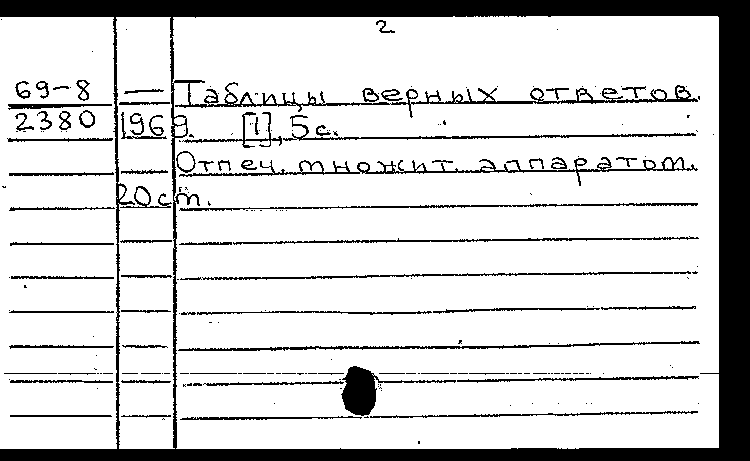 2
69-8 — Таблицы верных ответов.
2380 1969. [1], 5 с.
Отпеч. множит. аппаратом.
20 см.